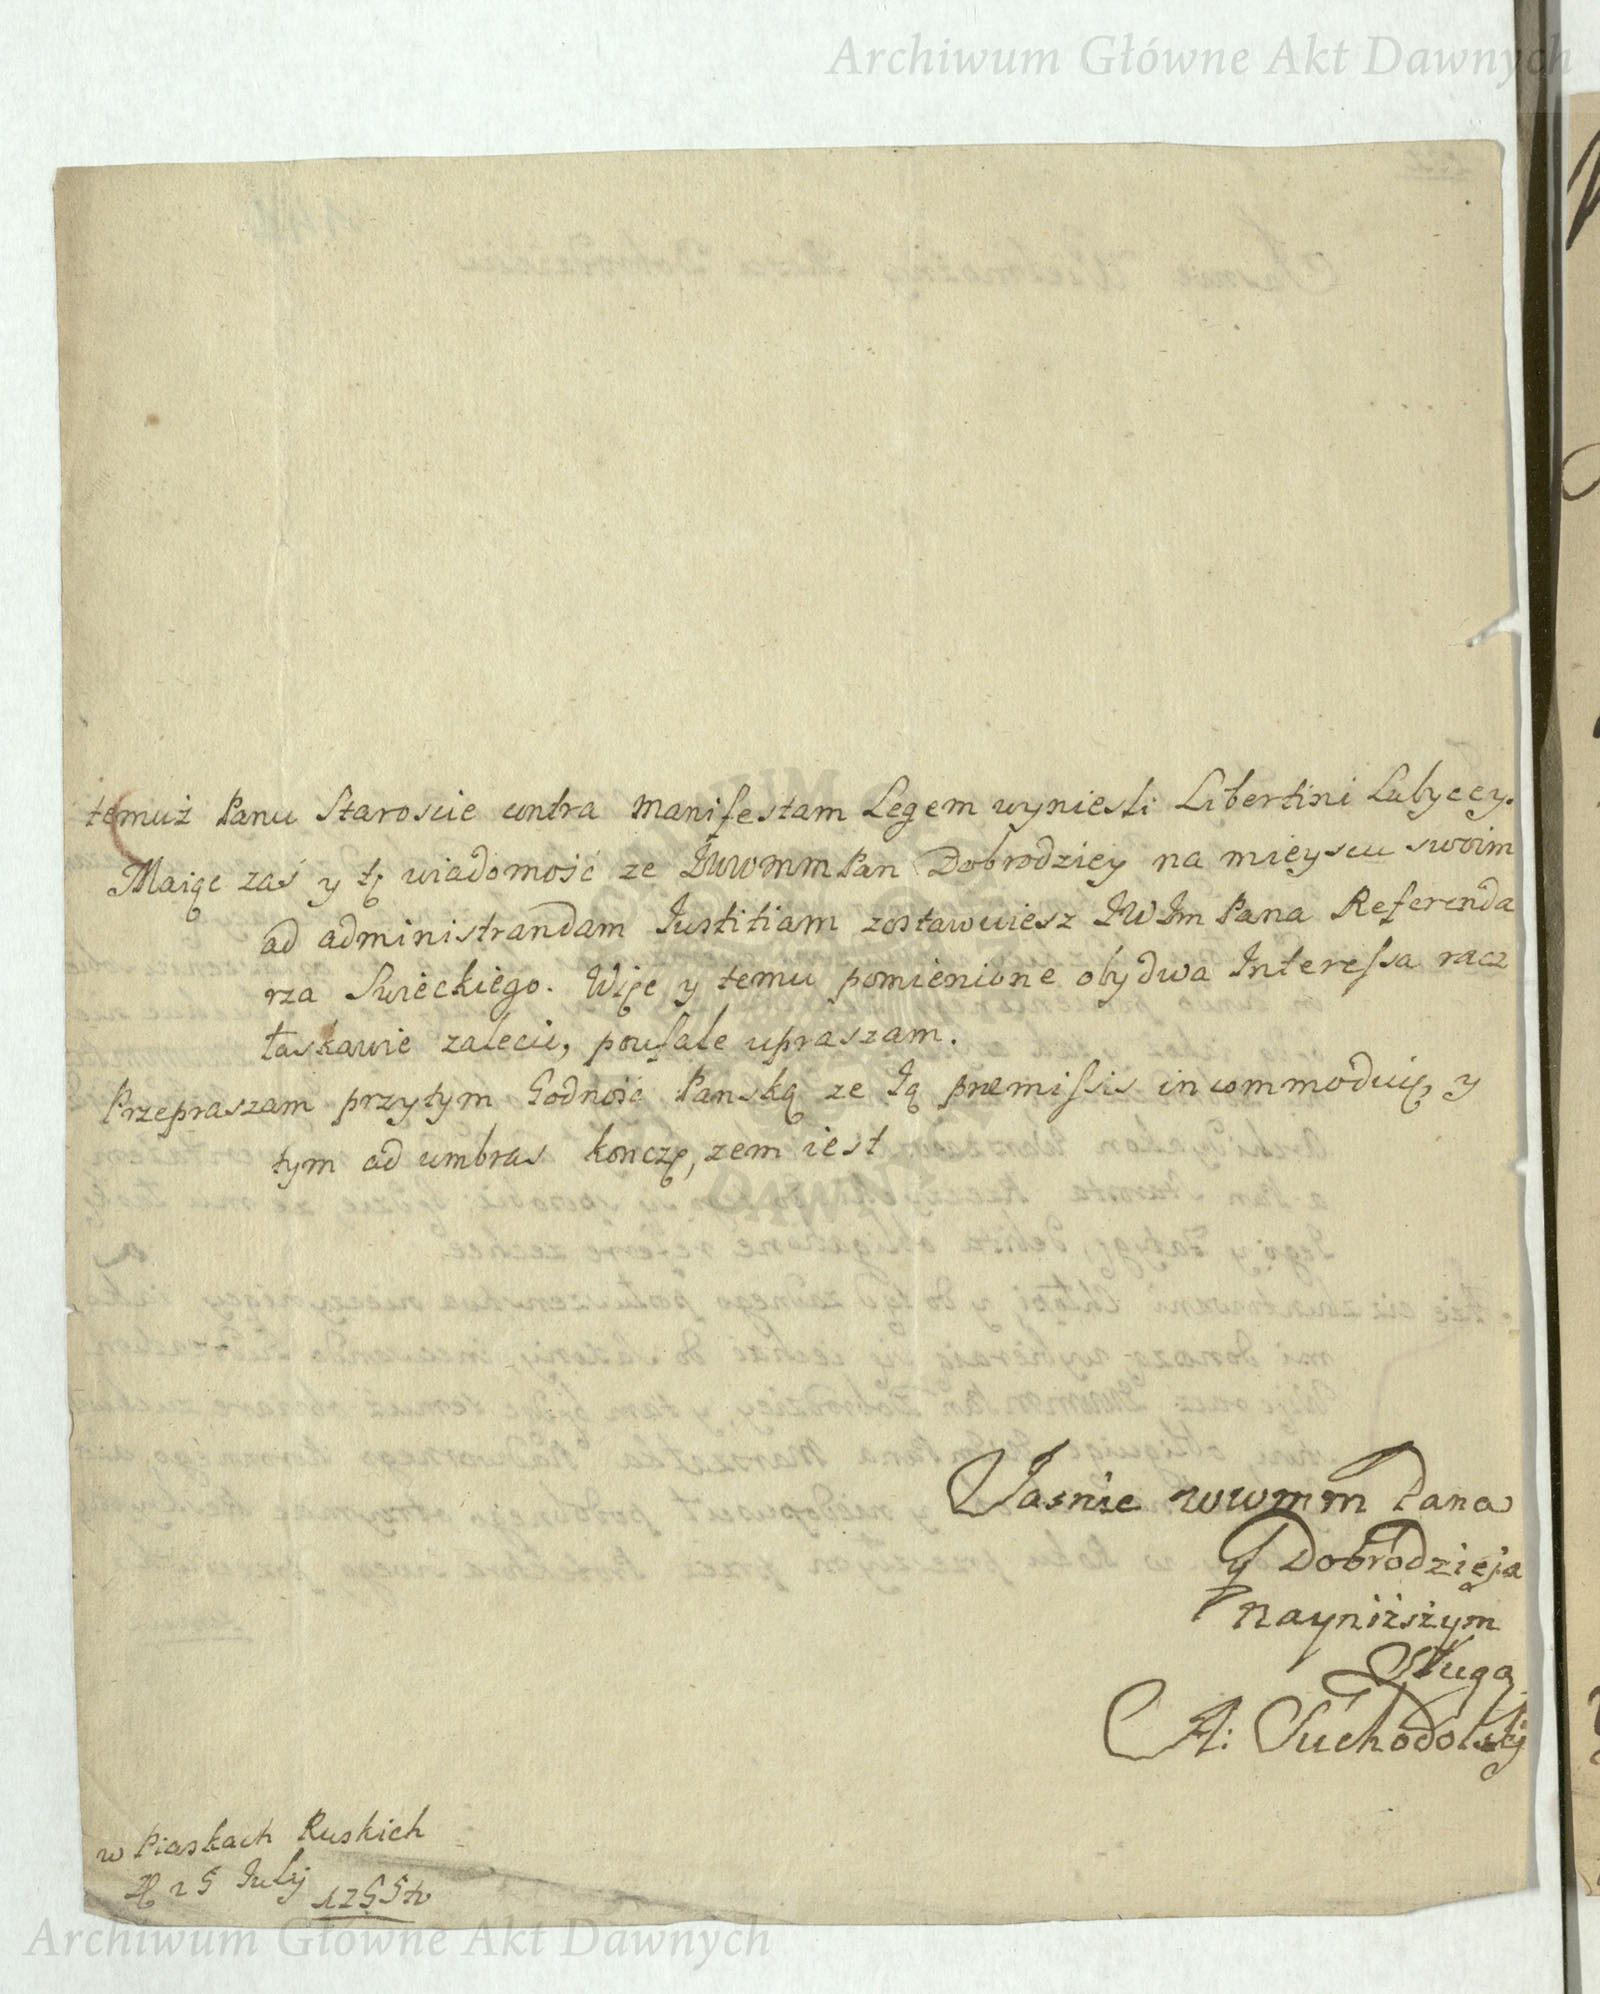 Archiwum Główne Akt Dawnych
temuż Panu Staroscie contra manifestam Legem wyniesli Libertini Lubyccy.
Maiąc zaś y tę wiadomość ze JWWMM Pan Dobrodziey na mieyscu swoim
ad administrandam Iustitiam zostawuiesz JW Jm Pana Referenda
rza Swieckiego. Więc y temu pomienione obydwa Interessa racz
łaskawie zalecić, poufale upraszam.
Przepraszam przytym Godność Panską ze Ią præmissis incommoduię, y
tym ad umbras konczę, zem iest
Jasnie WWMM Pana
y Dobrodzieja
nayniższym
Sługą
A: Suchodolsky
w Piaskach Ruskich
25 July
1755 r
Archiwum Główne Akt Dawnych